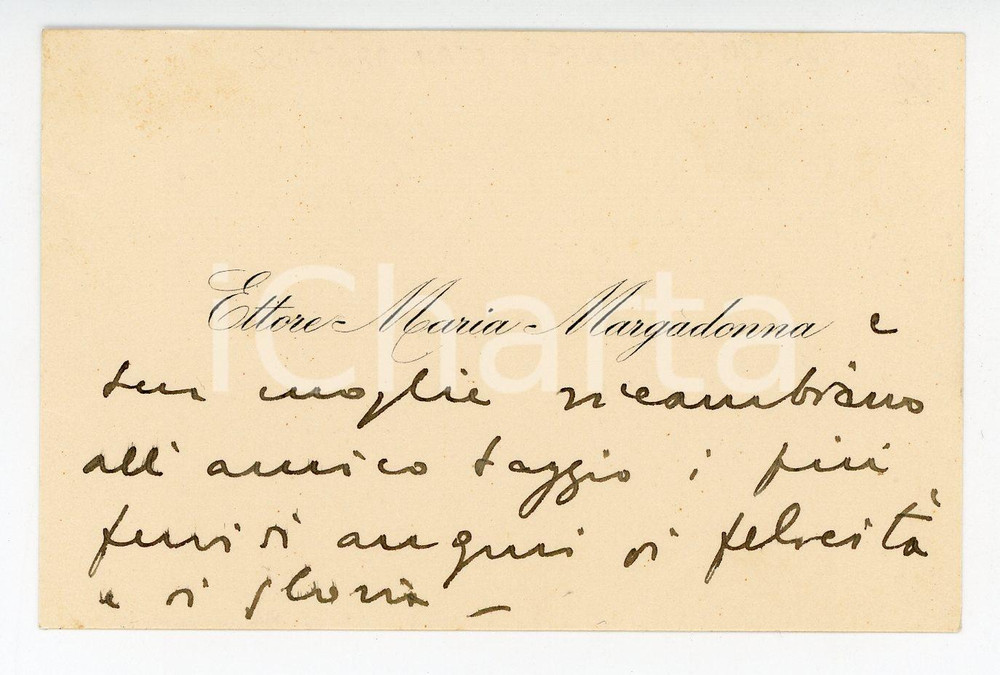 Ettore Maria Margadonna e
sua moglie ricambiano
all'amico Saggio i più
fervidi auguri di felicità
e di gloria –
iCharta